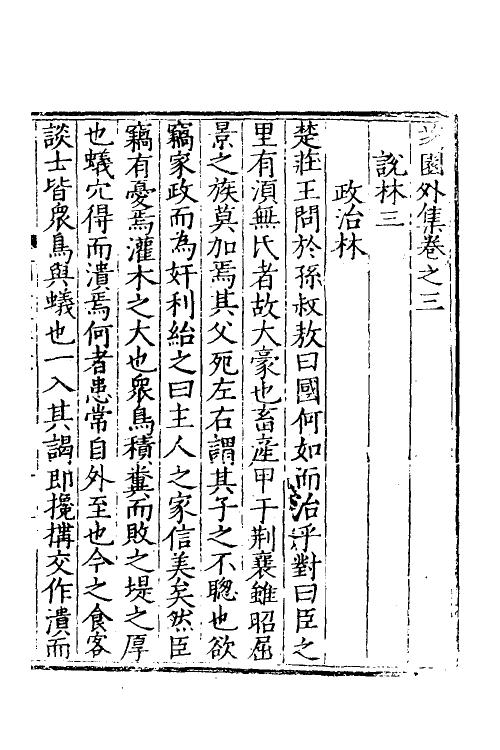 園外集卷之三
說林三
政治林
楚莊王問於孫叔敖曰國何如而治乎對曰臣之
里有須無氏者故大豪也畜産甲于荆襄雖昭屈
景之族莫加焉其父死左右謂其子之不聦也欲
竊家政而為奸利紿之曰主人之家信美矣然臣
竊有憂焉灌木之大也衆鳥積糞而敗之堤之厚
也蟻穴得而潰焉何者患常自外至也今之食客
談士皆衆鳥與蟻也一入其謁即攙搆交作潰而